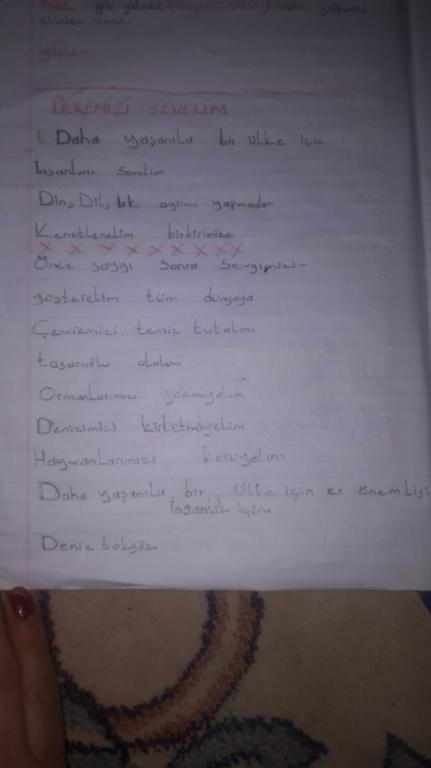 gibi gelmek
ÜLKEMİZİ SEVELİM
Daha yaşanılır bir ülke için
İnsanları sevelim
Din, Dil, Irk ayrımı yapmadan
Kenetlenelim birbirimize
x x x x x x x x x x
Önce saygı sonra sevgimizi-
gösterelim tüm dünyaya
Çevremizi temiz tutalım
tasaruflu olalım
Ormanlarımızı yakmayalım
Denizimizi kirletmiyelim
Hayvanlarımızı koruyalım
Daha yaşanılır bir ülke için en önemlisi
insanlık için.
Deniz